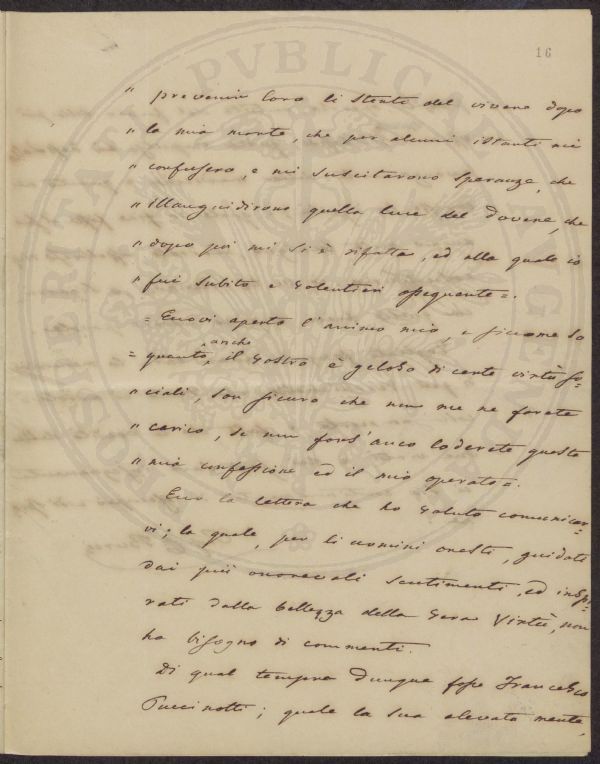 16
" prevenir loro li stenti del vivere dopo
" la mia morte, che per alcuni istanti mi
" confusero, e mi suscitarono speranze, che
" illanguidirono quella luce del dovere, che
" dopo poi mi si è rifatta, ed alla quale io
" fui subito e volentieri ossequente =.
= Eccovi aperto l'animo mio, e siccome so
= quanto anche il vostro è geloso di certe virtù so=
" ciali, son sicuro che non me ne farete
" carico, se non fors'anco loderete questa
" mia confessione ed il mio operato =.
Ecco la lettera che ho voluto comunicar=
vi; la quale, per li uomini onesti, guidati
dai più onorevoli sentimenti, ed inspi=
rati dalla bellezza della vera Virtù, non
ha bisogno di commenti.
Di qual tempra dunque fosse Francesco
Puccinotti; quale la sua elevata mente,
POSTERITATI PVBLICAE AVGENDVM